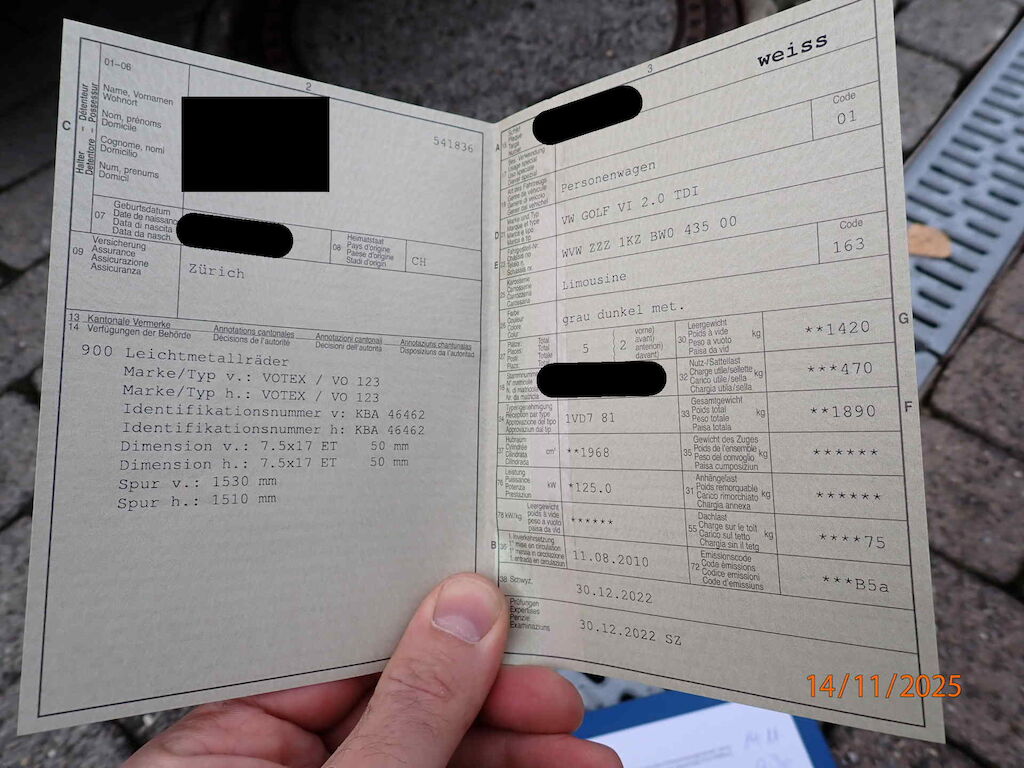 01-06
2
Name, Vornamen
Wohnort
Nom, prénoms
Domicile
Cognome, nomi
Domicilio
Num, prenums
Domicil
541836
C
Halter - Détenteur
Detentore - Possessur
07
Geburtsdatum
Date de naissance
Data di nascita
Data da nasch.
08
Heimatstaat
Pays d'origine
Paese d'origine
Stadi d'origin
CH
09
Versicherung
Assurance
Assicurazione
Assicuranza
Zürich
13 Kantonale Vermerke
14 Verfügungen der Behörde
Annotations cantonales
Décisions de l'autorité
Annotazioni cantonali
Decisioni dell'autorità
Annotaziuns chantunalas
Disposiziuns da l'autoritad
900 Leichtmetallräder
Marke/Typ v.: VOTEX / VO 123
Marke/Typ h.: VOTEX / VO 123
Identifikationsnummer v: KBA 46462
Identifikationsnummer h: KBA 46462
Dimension v.: 7.5x17 ET 50 mm
Dimension h.: 7.5x17 ET 50 mm
Spur v.: 1530 mm
Spur h.: 1510 mm
3
weiss
A
Code
01
Personenwagen
D
Marke und Typ
VW GOLF VI 2.0 TDI
E
WVW ZZZ 1KZ BW0 435 00
Code
163
Karosserie
Carrosserie
Carrozzeria
Limousine
Farbe
Couleur
Colore
Colur
grau dunkel met.
27
Plätze: Total
Places: Total
Posti: Totale
Plazs: Total
5
2
vorne)
avant)
anteriori)
davant)
30
Leergewicht
Poids à vide
Peso a vuoto
Paisa da vid
kg
**1420
G
32
Nutz-/Sattellast
Charge utile/sellette
Carico utile/sella
Chargia utila/sella
kg
***470
Typengenehmigung
Réception par type
Approvazione del tipo
Approvaziun dal tip
1VD7 81
33
Gesamtgewicht
Poids total
Peso totale
Paisa totala
kg
**1890
F
37
Hubraum
Cylindrée
Cilindrata
Cilindrada
cm³
**1968
35
Gewicht des Zuges
Poids de l'ensemble
Peso del convoglio
Paisa cumposiziun
kg
******
76
Leistung
Puissance
Potenza
Prestaziun
kW
*125.0
31
Anhängelast
Poids remorquable
Carico rimorchiato
Chargia annexa
kg
******
78 kW/kg
Leergewicht
poids à vide
peso a vuoto
paisa da vid
******
55
Dachlast
Charge sur le toit
Carico sul tetto
Chargia sin il tetg
kg
****75
B
36
1. Inverkehrsetzung
1ʳᵉ mise en circulation
1ª messa in circolazione
1. entrada en circulaziun
11.08.2010
72
Emissionscode
Code émissions
Codice emissioni
Code d'emissiuns
***B5a
38 Schwyz,
30.12.2022
Prüfungen
Expertises
Perizie
Examinaziuns
30.12.2022 SZ
14/11/2025